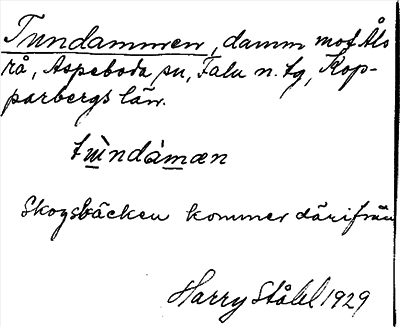 Tundammen, damm mot Åls
rå, Aspeboda sn, Falu n. tg, Kop-
parbergs län.
tùndámæn
Skogsbäcken kommer därifrån
Harry Ståhl 1929